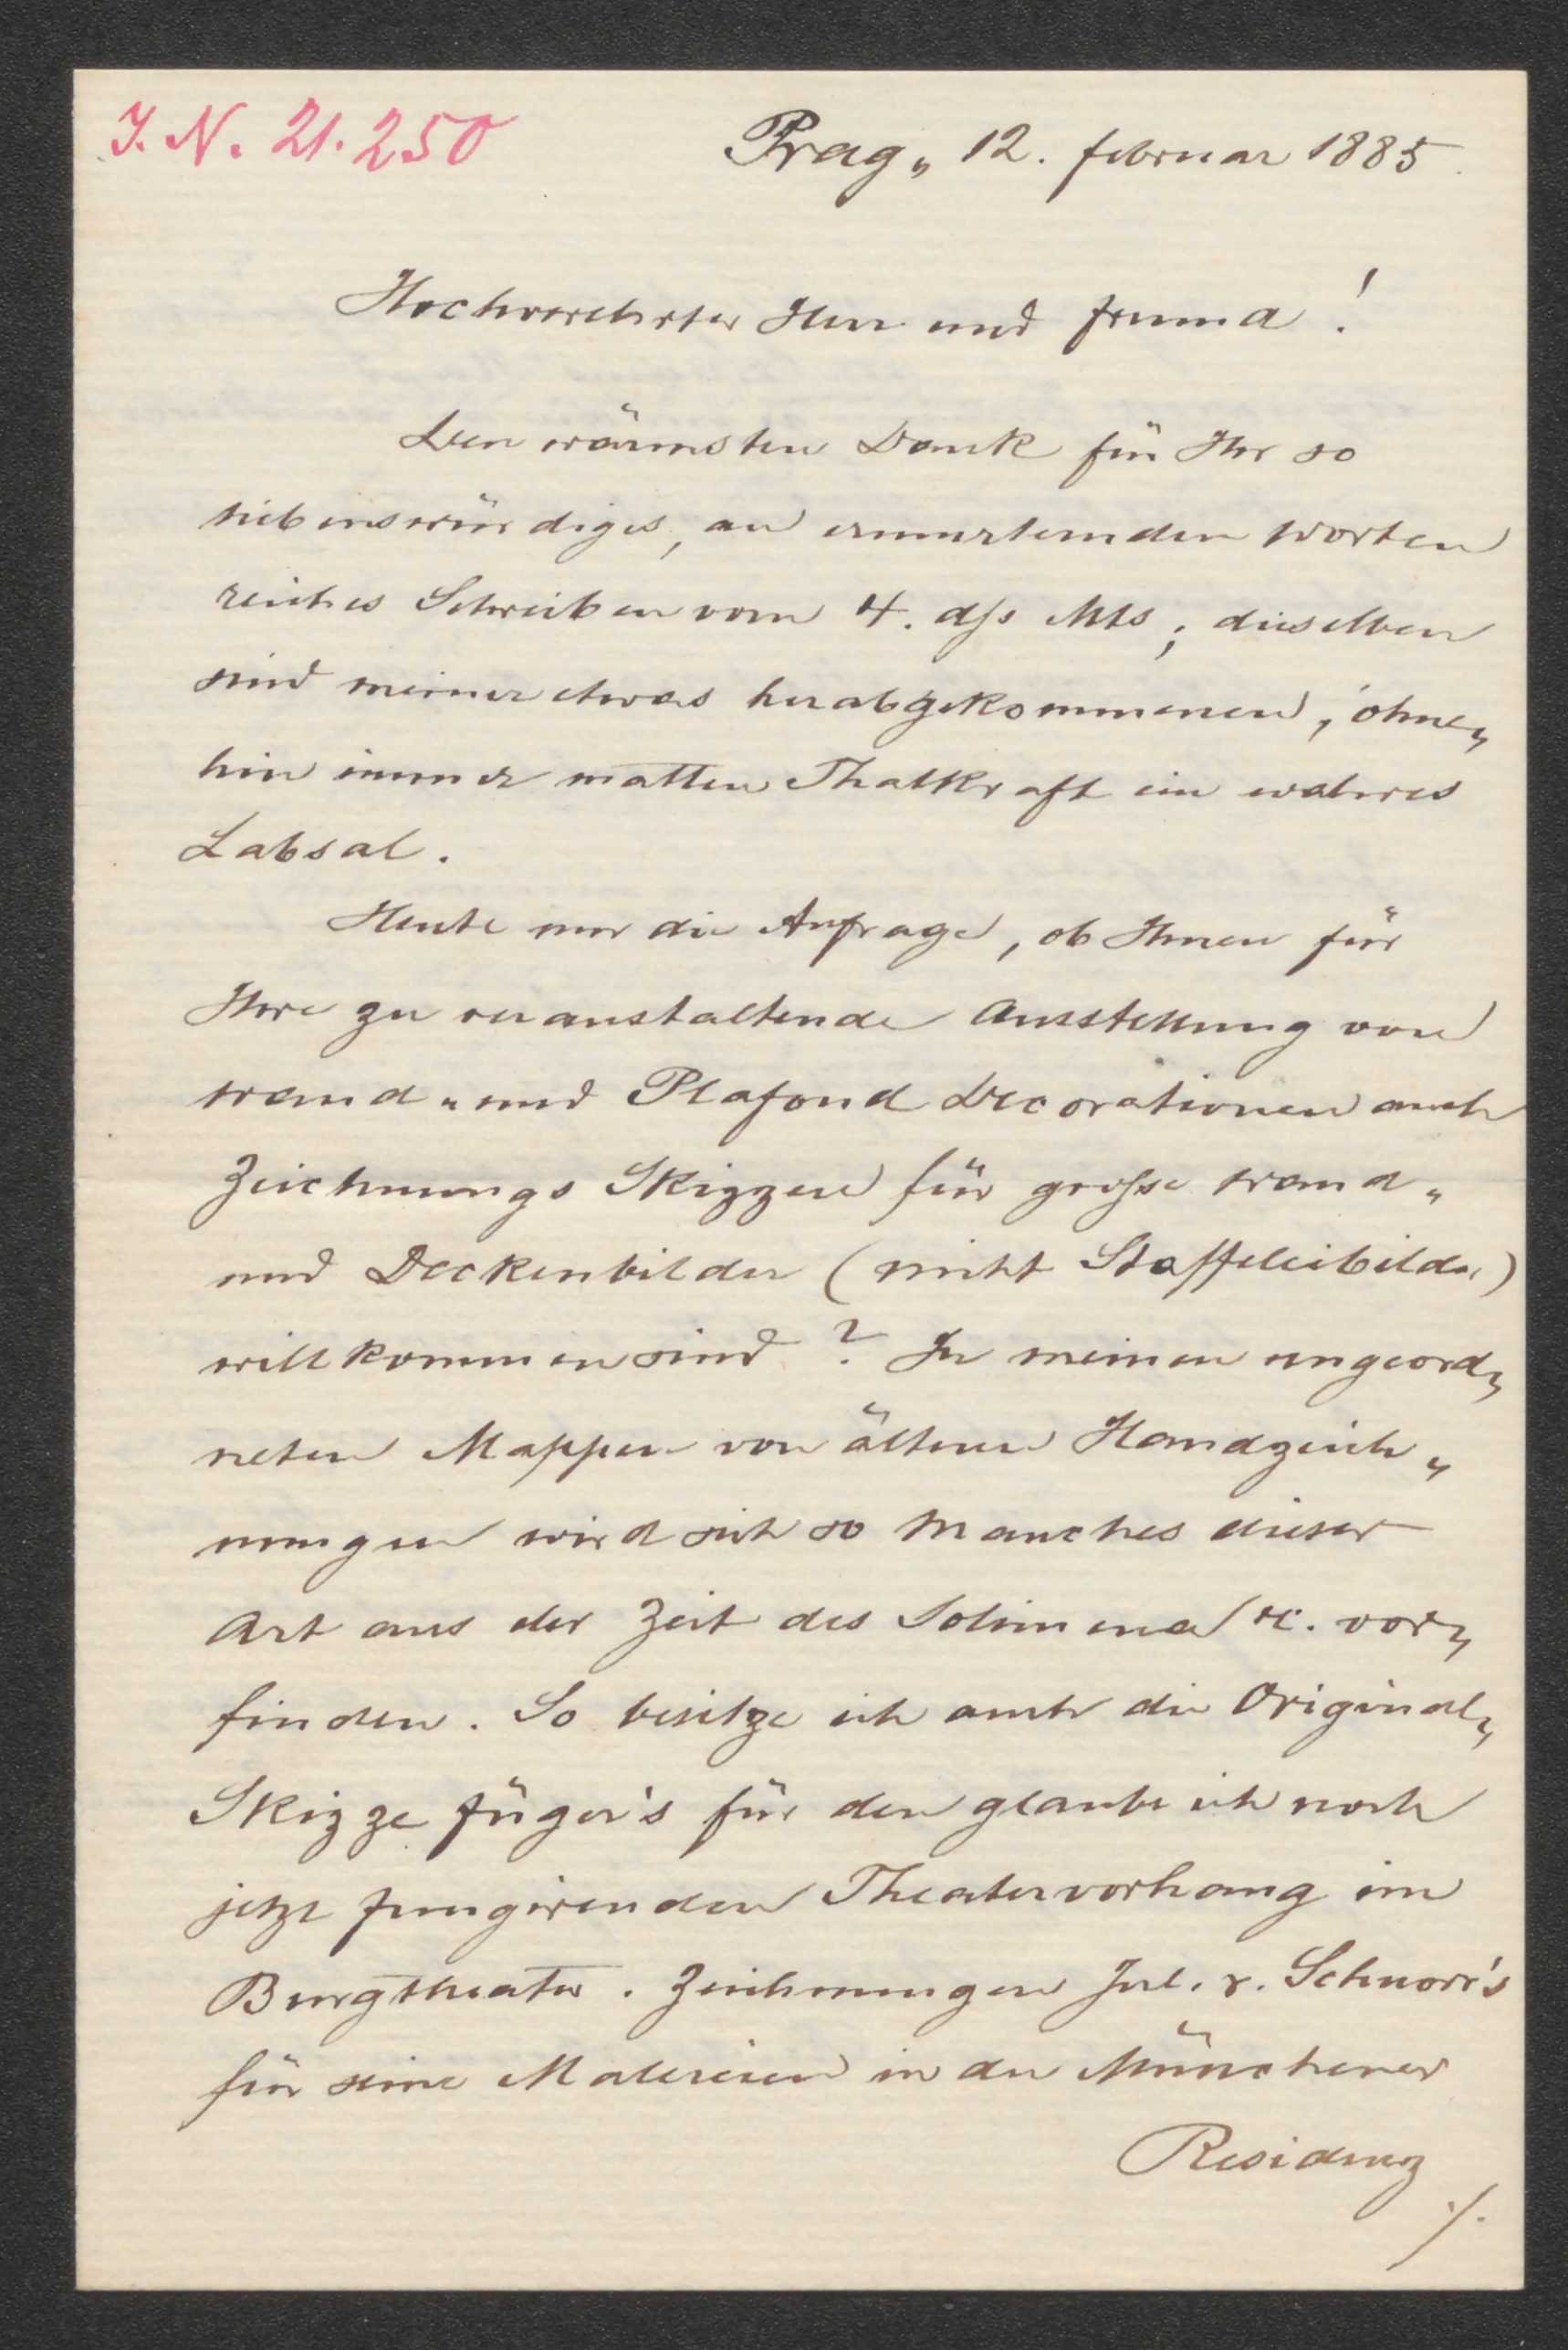 J. N. 21.250
Prag, 12. februar 1885.
Hochverehrter Herr und Freund!
Den wärmsten Dank für Ihr so
liebenswürdiges, an ermunternden Worten
reiches Schreiben vom 4. dss Mts; dieselben
sind meiner etwas herabgekommenen, ohne„
hin immer matten Thatkraft ein wahres
Labsal.
Heute nur die Anfrage, ob Ihnen für
Ihre zu veranstaltende Ausstellung von
Wand„ und Plafond Decorationen auch
Zeichnungs Skizzen für grosse Wand„
und Deckenbilder (nicht Staffeleibilder)
willkommen sind? In meinen ungeord„
neten Mappen von älteren Handzeich„
nungen wird sich so Manches dieser
Art aus der Zeit des Solimena etc. vor„
finden. So besitze ich auch die Original„
Skizze Füger's für den glaube ich noch
jetzt fungirenden Theatervorhang im
Burgtheater. Zeichnungen Jul. v. Schnorr's
für seine Malereien in der Münchener
Residenz
./.